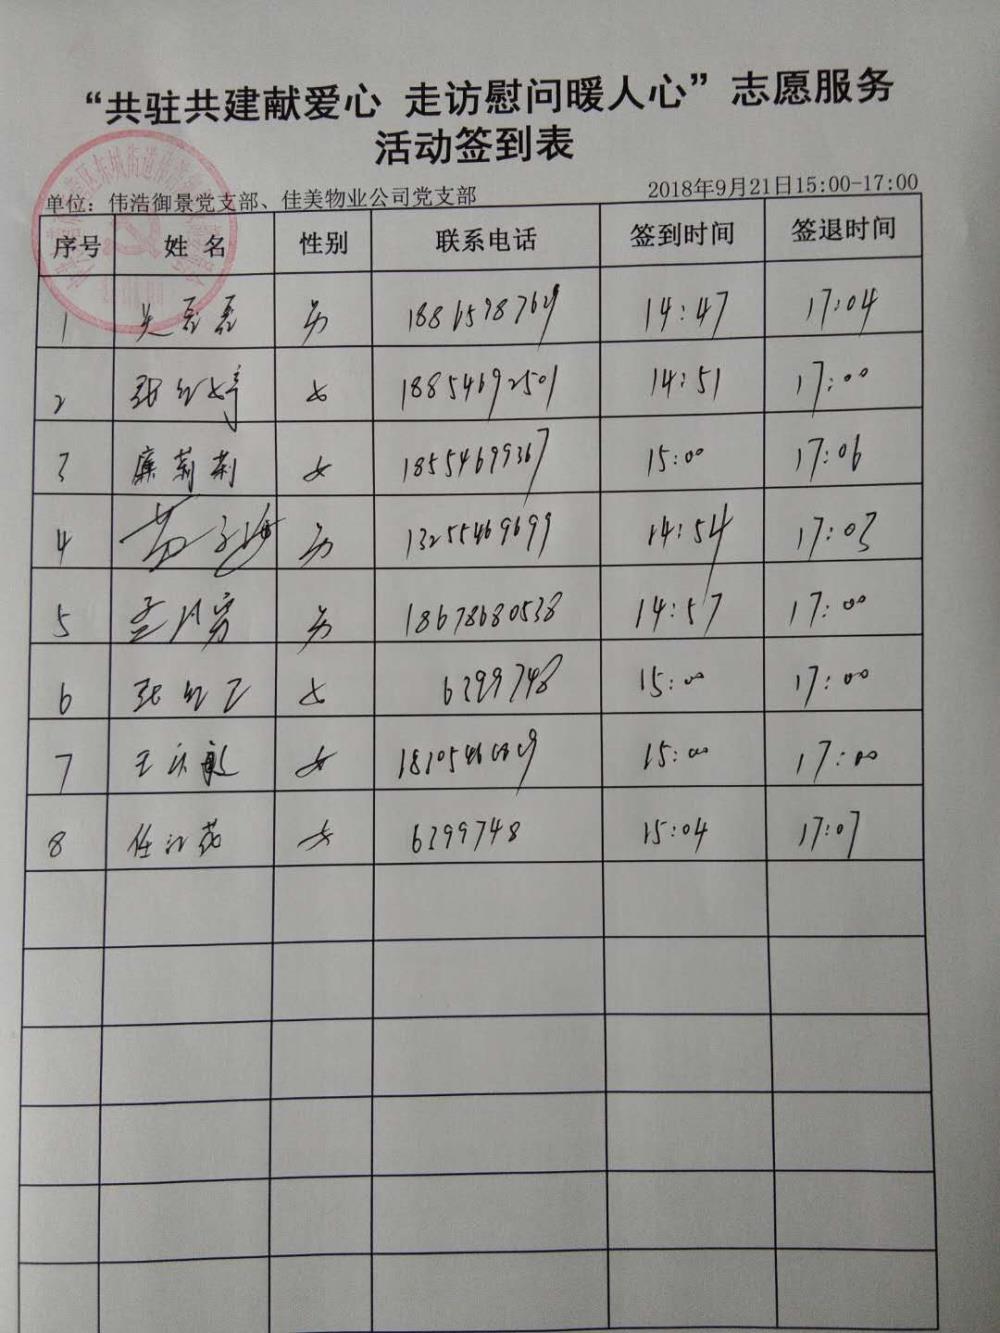 “共驻共建献爱心 走访慰问暖人心”志愿服务
活动签到表
单位：伟浩御景党支部、佳美物业公司党支部 2018年9月21日15:00-17:00
序号 姓名 性别 联系电话 签到时间 签退时间
1 男 14:47 17:04
2 张红婷 女 18854692501 14:51 17:00
3 廉莉莉 女 18554699367 15:00 17:06
4 男 13255469699 14:54 17:03
5 男 18678680538 14:57 17:00
6 女 6299748 15:00 17:00
7 女 15:00 17:00
8 任江花 女 6299748 15:04 17:07